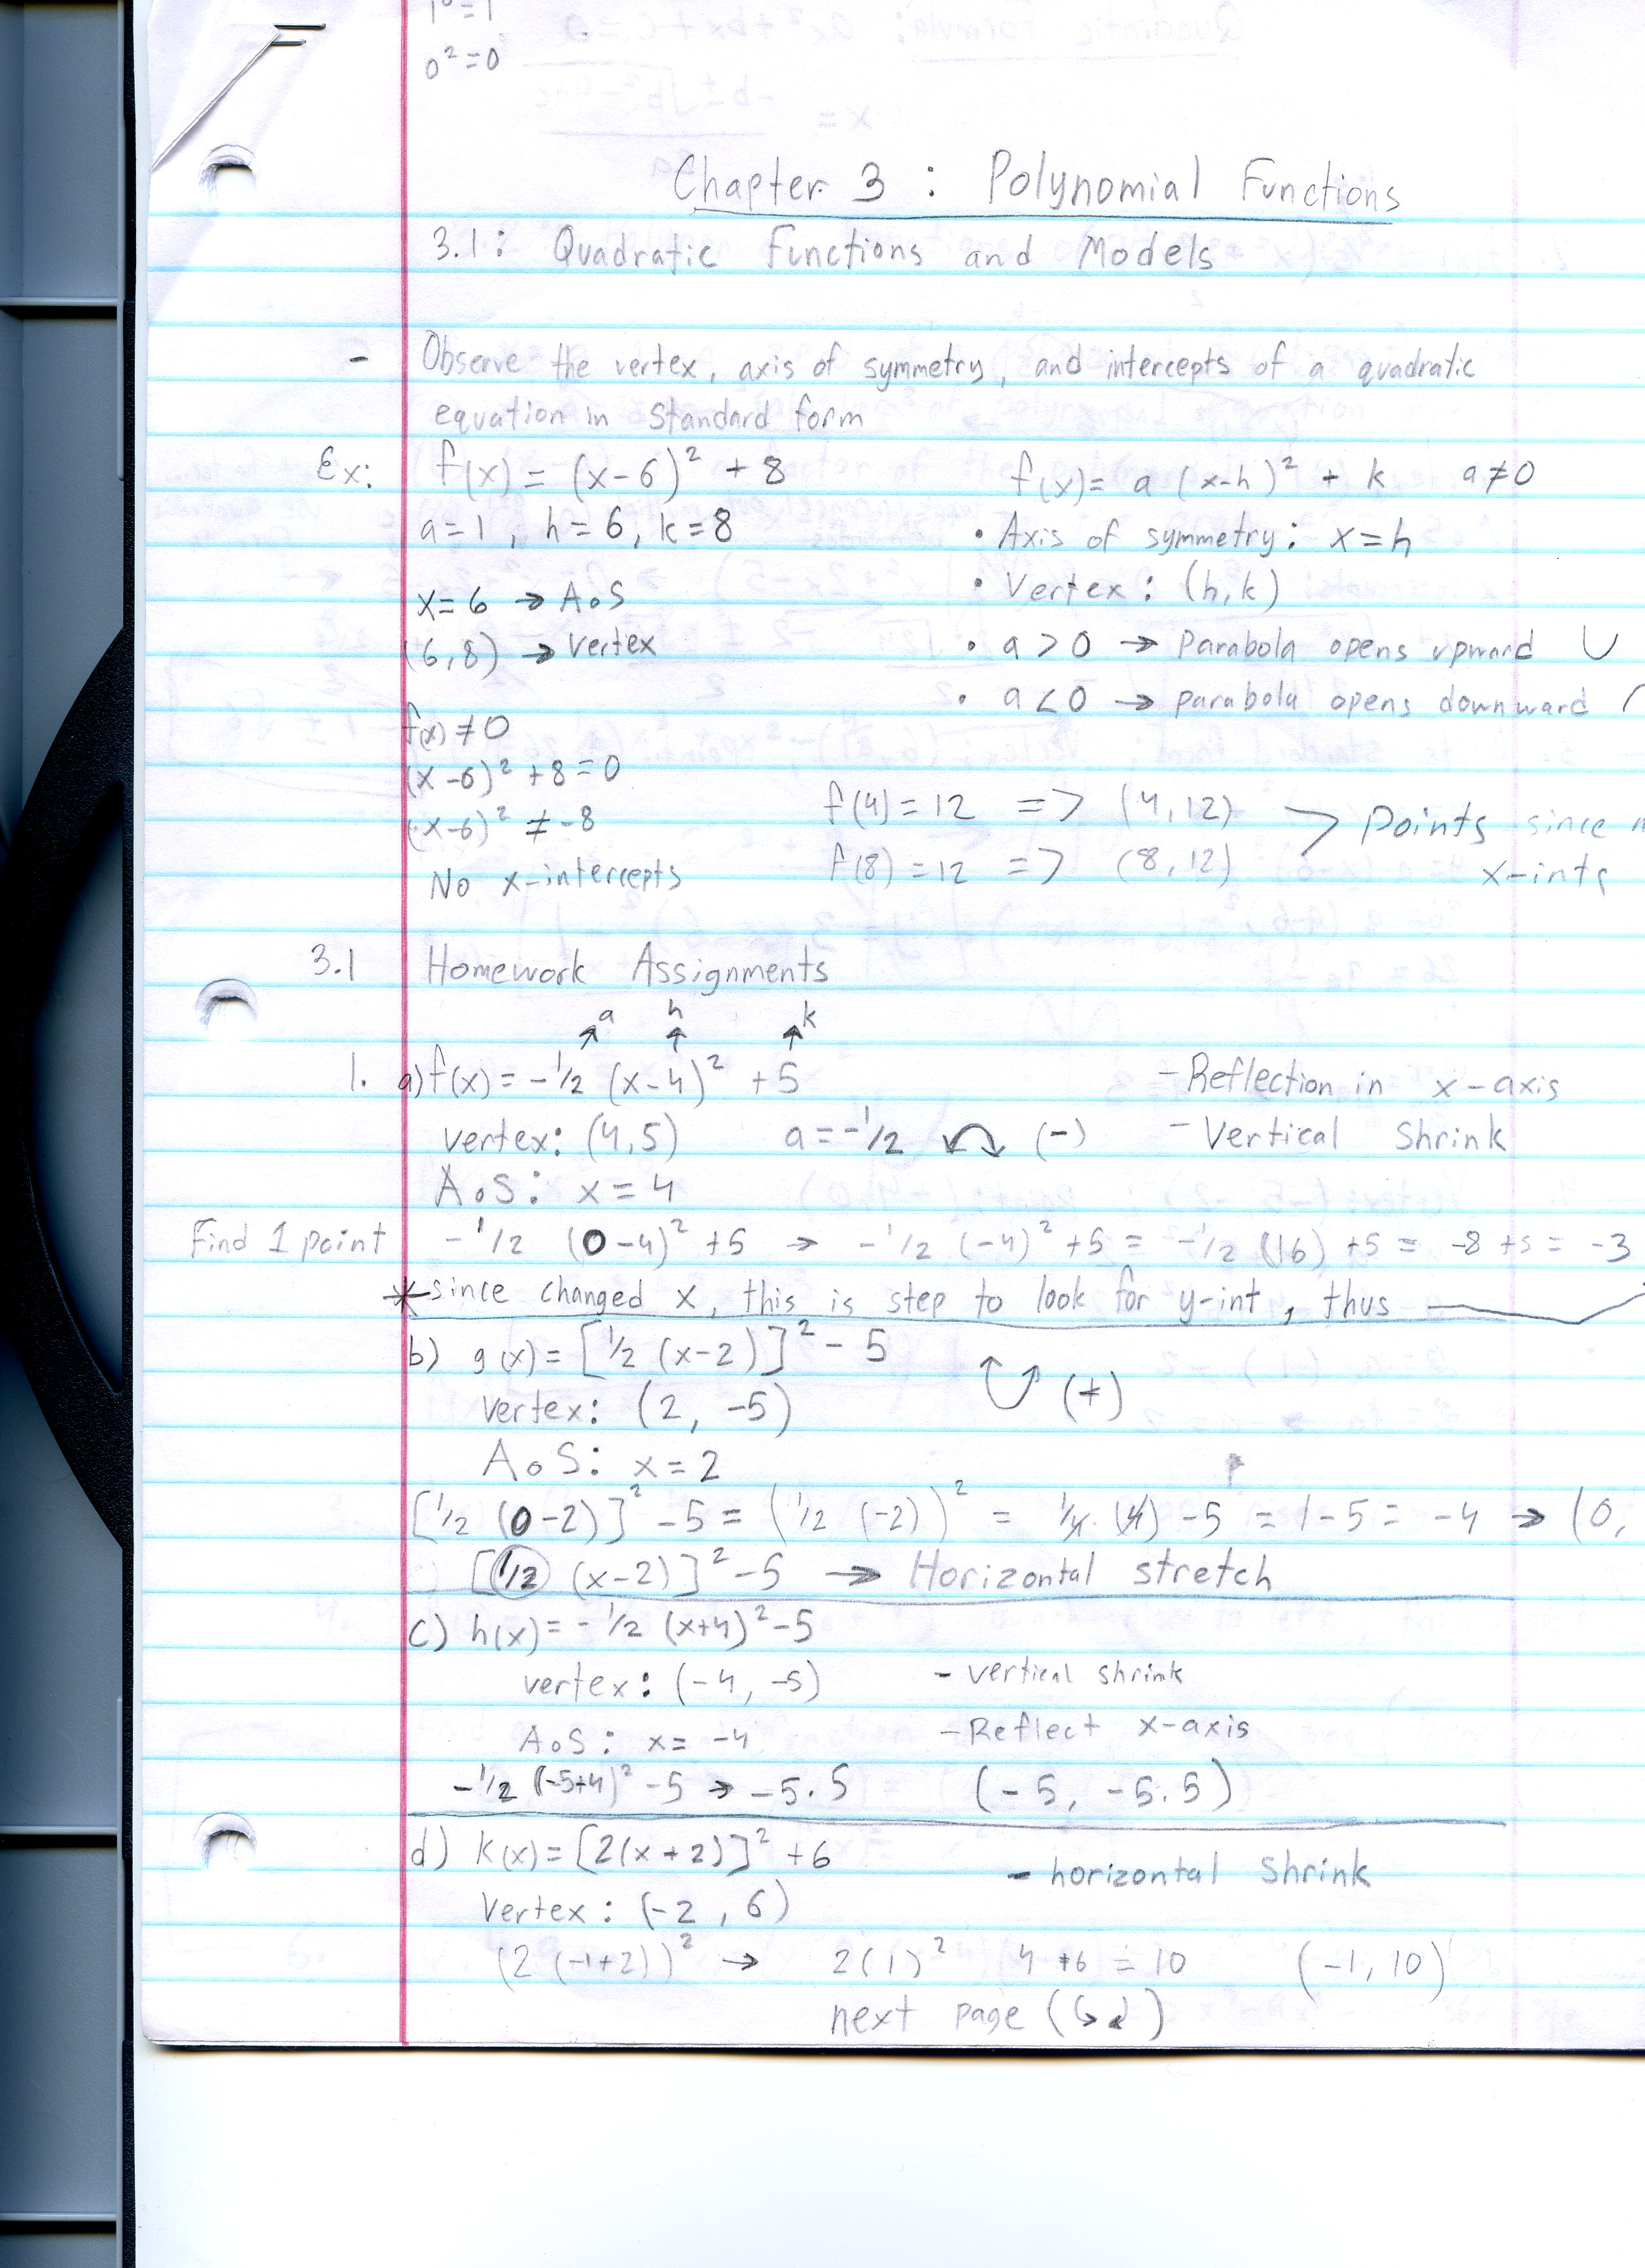 1⁰=1
0²=0
Chapter 3 : Polynomial Functions
3.1: Quadratic Functions and Models
- Observe the vertex, axis of symmetry, and intercepts of a quadratic
equation in standard form
Ex: f(x) = (x-6)² + 8
f(x)= a (x-h)² + k a≠0
a=1, h=6, k=8
• Axis of symmetry: x=h
• Vertex: (h,k)
x=6 → AoS
(6,8) → Vertex
• a > 0 → Parabola opens upward ∪
• a < 0 → parabola opens downward
f(x) ≠ 0
(x-6)² +8=0
(x-6)² ≠ -8
No x-intercepts
f(4) = 12 => (4,12) > Points since
f(8) = 12 => (8,12) x-ints
3.1 Homework Assignments
a h k
1. a) f(x) = -1/2 (x-4)² +5 - Reflection in x-axis
vertex: (4,5) a=-1/2 (-) - Vertical Shrink
AoS: x=4
Find 1 point -1/2 (0-4)² +5 → -1/2 (-4)² +5 = -1/2 (16) +5 = -8 +5 = -3
*since changed x, this is step to look for y-int, thus
b) g(x)= [1/2 (x-2)]² - 5 (+)
vertex: (2, -5)
AoS: x=2
[1/2 (0-2)]² -5 = (1/2 (-2))² = 1/4 (4) -5 = 1-5 = -4 → (0,
[1/2 (x-2)]² -5 → Horizontal stretch
c) h(x)= -1/2 (x+4)² -5
vertex: (-4, -5) - vertical shrink
AoS: x= -4 - Reflect x-axis
-1/2 (-5+4)² -5 → -5.5 (-5, -5.5)
d) k(x)= [2(x+2)]² +6 - horizontal Shrink
Vertex: (-2, 6)
(2 (-1+2))² → 2(1)² 4 +6 = 10 (-1, 10)
next page